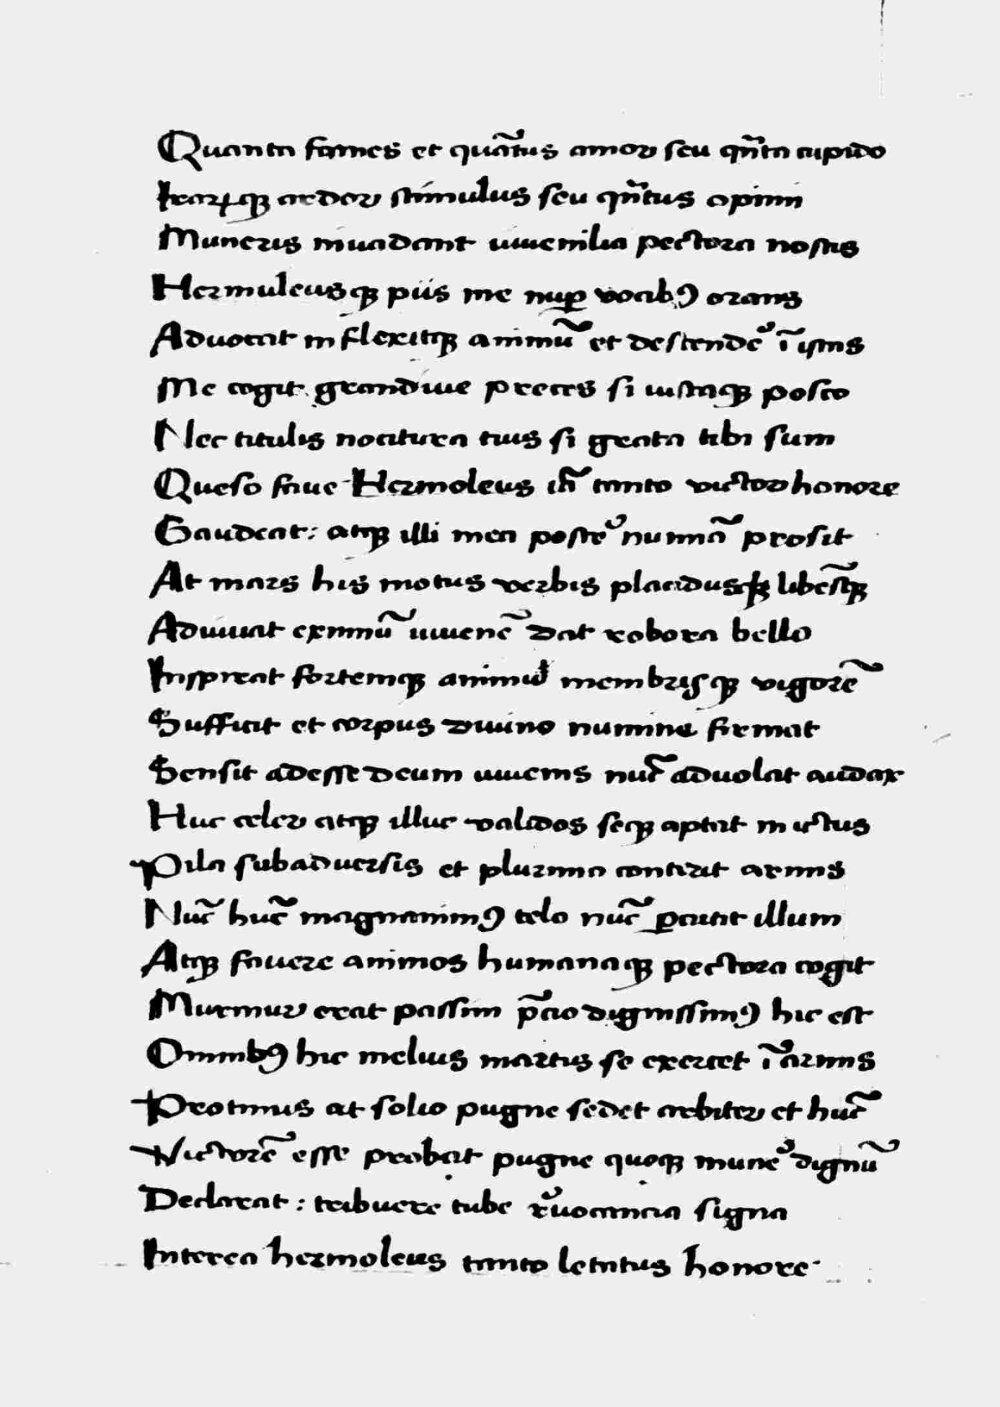 Quanta fames et quãtus amor seu qñta cupido
Iraꝝqꝫ ardor stimulus seu qñtus opimi
Muneris inuadant iuuenilia pectora nostis
Hermuleusqꝫ piis me nuꝑ uocibꝰ orans
Aduocat in flexitqꝫ animũ et descendeˀ ĩ istas
Me cogit grandiue preces si iustaqꝫ posco
Nec titulis nocitura tuis si grata tibi sum
Queso faue Hermoleus ĩ tanto uictor honore
Gaudeat: atqꝫ illi mea posteˀ numĩa prosit
At mars his motus uerbis placidusqꝫ libẽsqꝫ
Adiuuat eximiũ iuuenẽ dat robora bello
Inspirat fortemqꝫ animũ membrisqꝫ uigorẽ
Sufficit et corpus diuino numine firmat
Sensit adesse deum iuuenis nũc aduolat audax
Huc celer atqꝫ illuc ualidos seqꝫ aptat in ictus
Pila sub aduersis et plurima conterit armis
Nũc hũc magnanimꝰ telo nũc ꝑcutit illum
Atqꝫ fauere animos humanaqꝫ pectora cogit
Murmur erat passim p̃cio dignissimꝰ hic est
Omnibꝰ hic melius martis se exercet ĩ armis
Protinus at solio pugne sedet arbiter et hũc
Victorẽ esse probat pugne quoqꝫ muneˀ dignũ
Declarat: tribuere tube rˀuocancia signa
Interea hermoleus tanto letatus honore